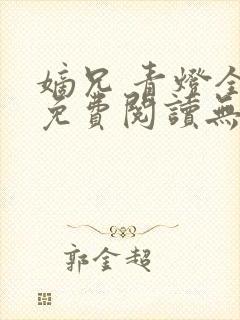 嫡兄 青燈全
免費閱讀無
郭金超